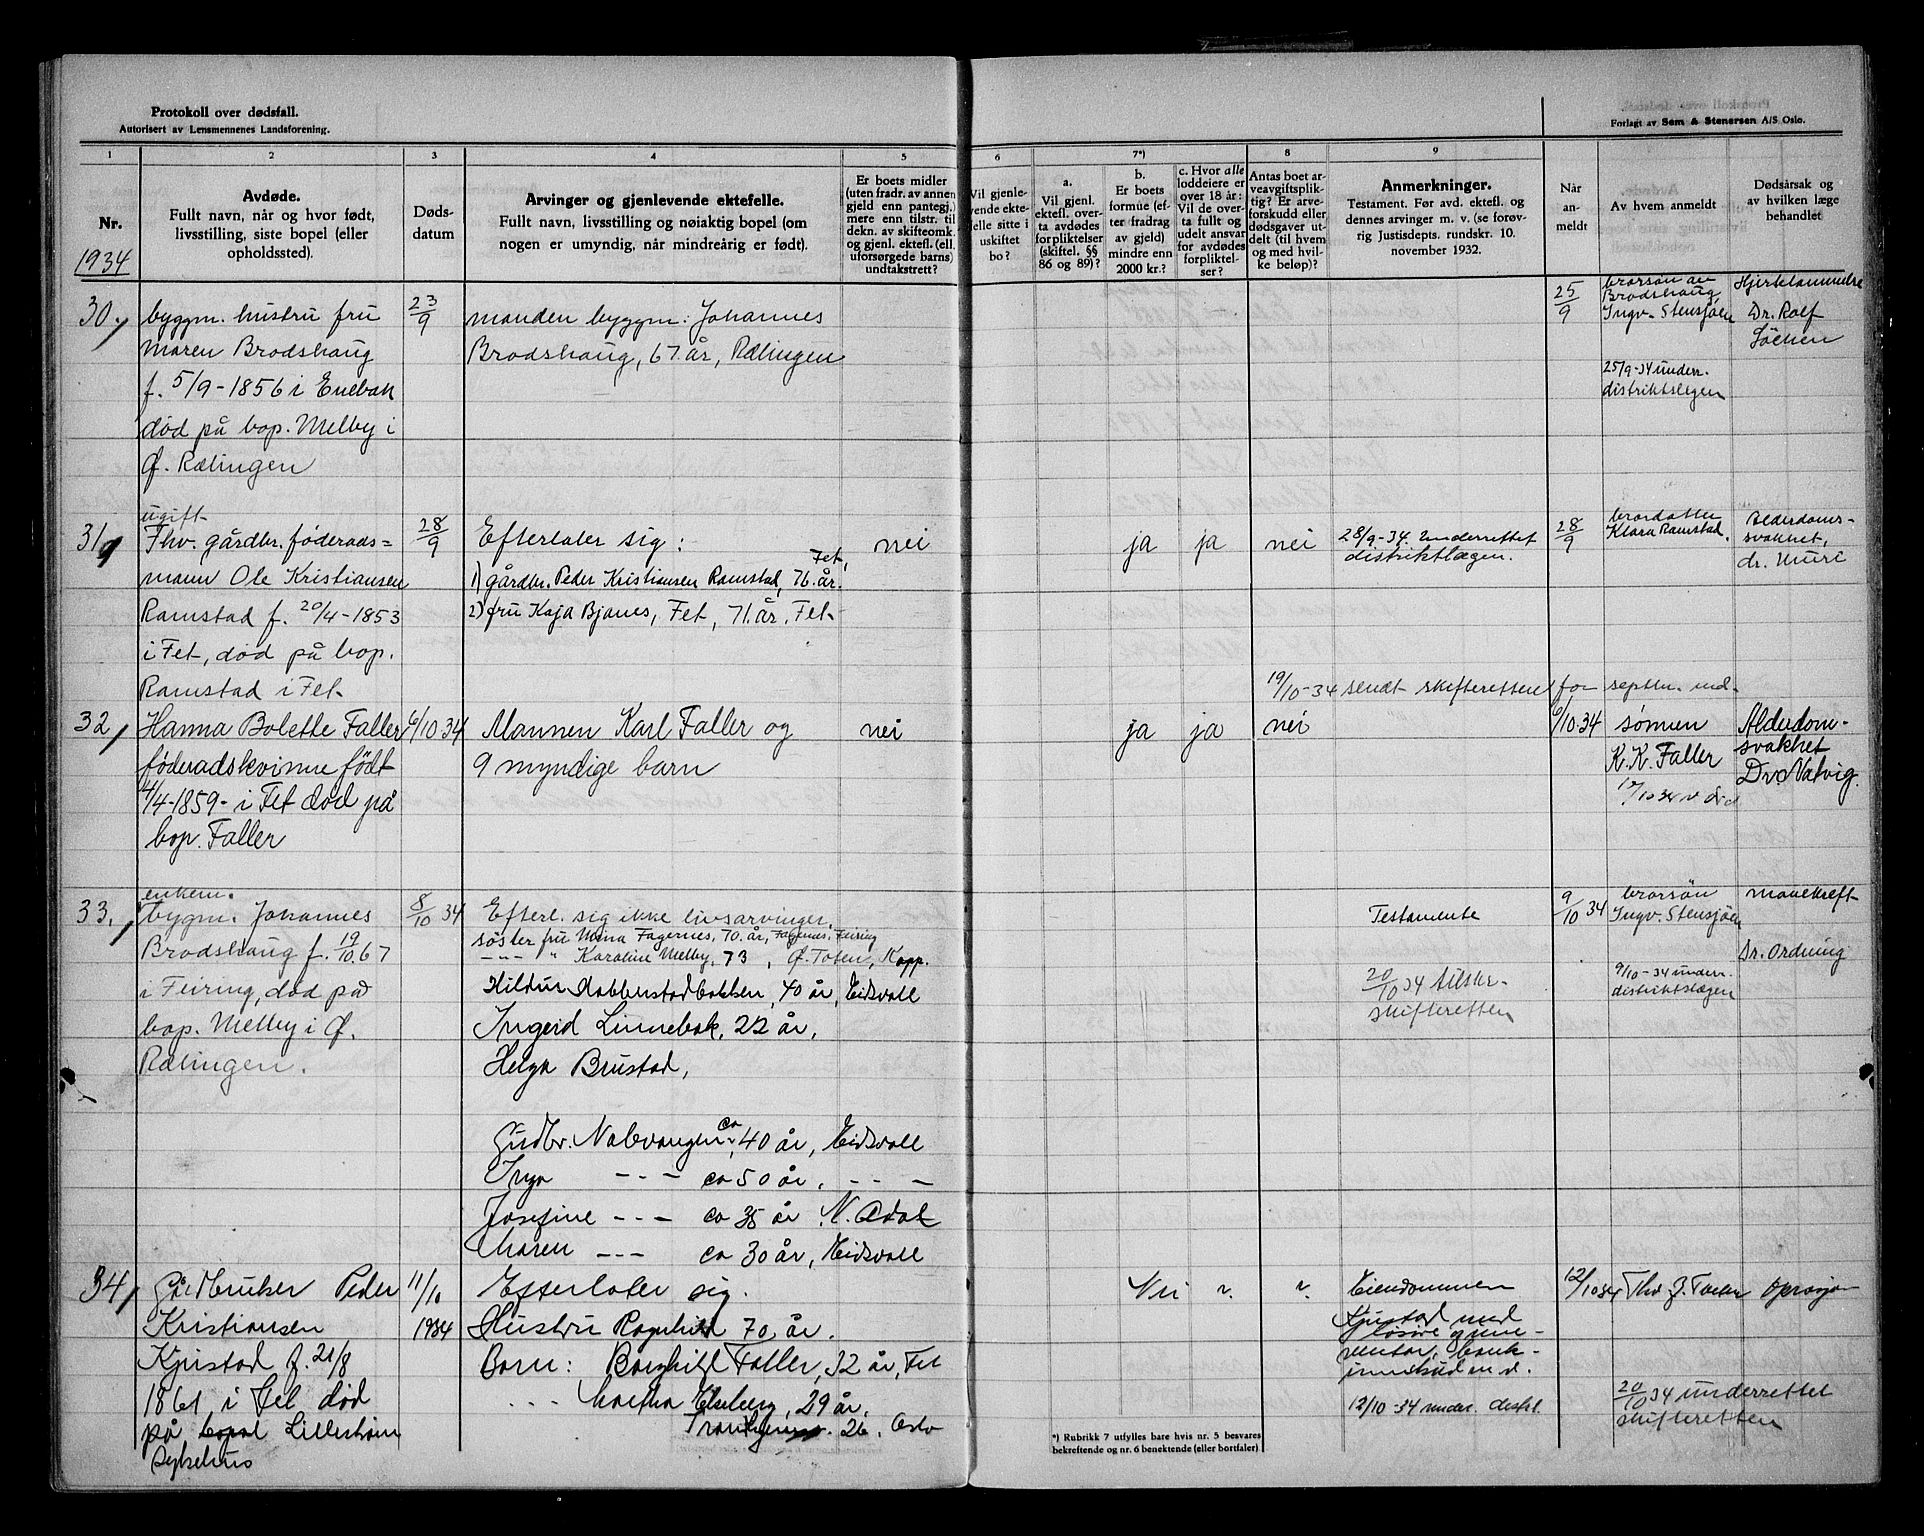 Protokoll over dødsfall.
Autorisert av Lensmennenes Landsforening.
Forlagt av Sem & Stenersen A/S Oslo.
1 2 3 4 5 6 7*) 8 9
Nr.
1934
Avdøde.
Fullt navn, når og hvor født,
livsstilling, siste bopel (eller
opholdssted).
Døds-
datum
Arvinger og gjenlevende ektefelle.
Fullt navn, livsstilling og nøiaktig bopel (om
nogen er umyndig, når mindreårig er født).
Er boets midler
(uten fradr. av annen
gjeld enn pantegj.)
mere enn tilstr. til
dekn. av skifteomk.
og gjenl. ektefl. (ell.
uforsørgede barns)
undtakstrett?
Vil gjenle-
vende ekte-
felle sitte i
uskiftet
bo?
a.
Vil gjenl.
ektefl. over-
ta avdødes
forpliktelser
(skiftel. §§
86 og 89)?
b.
Er boets
formue (ef-
ter fradrag
av gjeld)
mindre enn
2000 kr.?
c. Hvor alle
loddeiere er
over 18 år:
Vil de over-
ta fullt og
udelt ansvar
for avdødes
forpliktel-
ser?
Antas boet ar-
veavgiftsplik-
tig? Er arve-
forskudd eller
dødsgaver ut-
delt (til hvem
og med hvil-
ke beløp)?
Anmerkninger.
Testament. Før avd. ektefl. og
dennes arvinger m. v. (se forøv-
rig Justisdepts. rundskr. 10.
november 1932.
Når
an-
meldt
Av hvem anmeldt
Dødsårsak og
av hvilken læge
behandlet
30,
byggm. hustru fru
Maren Brodshaug
f. 5/9-1856 i Enebak
død på bop. Melby i
Ø. Rælingen
23/9
manden byggm: Johannes
Brodshaug, 67 år, Rælingen
25/9
brorsøn av
Brodshaug,
Ingv. Stensjøen
25/9-34 underr.
distriktslegen
Hjerklammelse
Dr. Rolf
31,
ugift
Fhv. gårdbr. føderaads=
mann Ole Kristiansen
Ramstad f. 20/4-1853
i Fet, død på bop.
Ramstad i Fet-
28/9
Efterlater sig:
1) gårdbr. Peder Kristiansen Ramstad, 76 år. Fet,
2) fru Kaja Bjanes, Fet, 71 år. Fet-
nei
ja ja nei
28/9-34. Underrettet
distriktlægen.
28/9
brordatter
Klara Ramstad.
Alderdoms-
svakhet,
dr. Muri
19/10-34 sendt skifteretten for septbr. md-
32,
Hanna Bolette Faller
føderadskvinne født
4/4-1859- i Fet død på
bop. Faller
6/10 34
Mannen Karl Faller og
9 myndige barn
nei
ja ja nei
6/10-34
sønnen
K. K. Faller
Alderdom-
svakhet
Dr. Natvig.
33.,
enkem.
bygm. Johannes
Brodshaug f. 19/10.67
i Feiring, død på
bop. Melby i Ø.
Rælingen.
8/10 34
Efterl. sig ikke livsarvinger,
søster fru Mina Fagernes, 70 år, Fagernes, Feiring
--- " Karoline Melby, 73, Ø. Toten, Kapp.
Hildur Habberstadbakken, 40 år, Eidsvoll
Ingerid Linnebak, 22 år,
Helga Brustad,
Gudbr. Nabvangen ca 40 år, Eidsvoll
Inga --- ca 50 år, ---
Josefine --- ca 35 år N. Odal
Maren --- ca 30 år, Eidsvoll
Testamente
20/10 34 tilskr.
skifteretten
9/10 34
brorsøn
Ingv. Stensjøen
9/10-34 underr.
distriktslægen
mavekreft
Dr. Ordning
34,
Gårdbruker Peder
Kristiansen
Kjustad f. 21/8
1861 i Fet død
på bopæl Lillestrøm
Sykehus
11/10
1934
Efterlater sig.
Hustru Ragnhild 70 år.
Barn: Borghild Faller, 32 år, Fet
--- Martha Elseberg, 29 år.
26, Oslo
Nei
Eiendommen
Kjustad med
løsøre og inne-
ventar, bank-
innskud m. v.
12/10-34 under. distrl.
12/10 34
Thv. J. Toeber
20/10 34 underrettet
skifteretten
*) Rubrikk 7 utfylles bare hvis nr. 5 besvares
bekreftende og nr. 6 benektende (eller bortfaler)